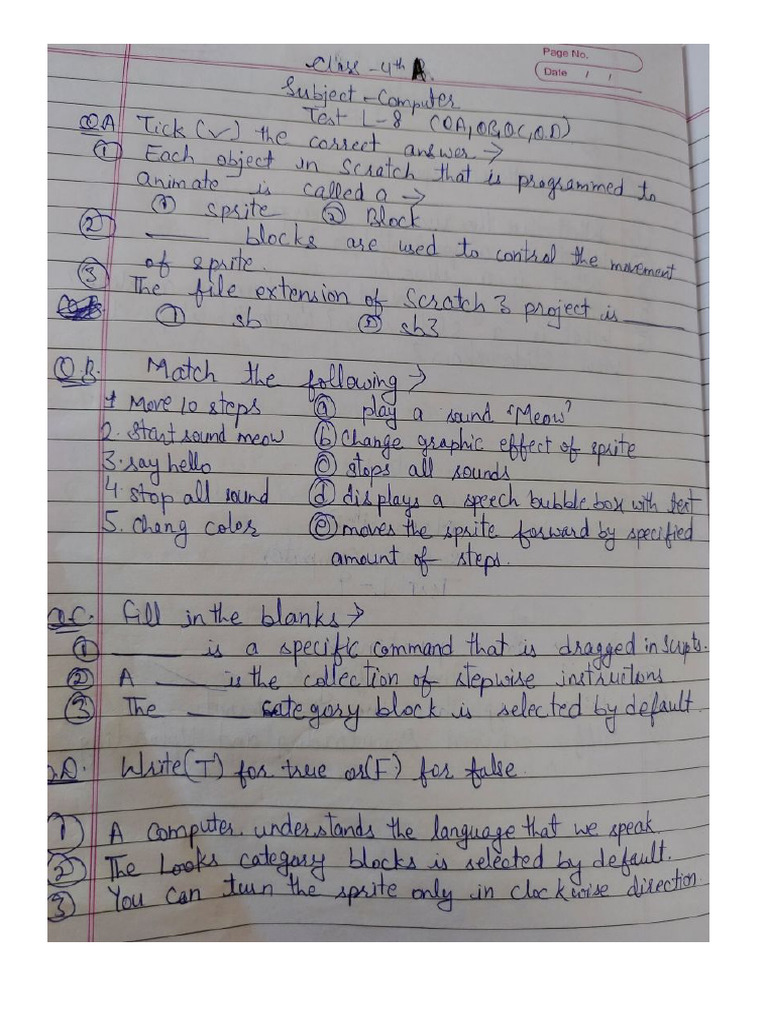 Page No.
Date / /
Class - 4th A.
Subject - Computer
Test L-8 (QA, QB, QC, Q.D)
Q.A Tick (✓) the correct answer →
① Each object in Scratch that is programmed to
animate is called a →
① sprite ② Block
② ____ blocks are used to control the movement
of sprite.
③ The file extension of Scratch 3 project is ____
① sb ② sb3
Q.B. Match the following →
1 Move 10 steps ⓐ play a sound "Meow"
2. Start sound meow ⓑ Change graphic effect of sprite
3. say hello ⓒ stops all sounds
4. stop all sound ⓓ displays a speech bubble box with text
5. Chang color ⓔ moves the sprite forward by specified
amount of steps.
Q.C. Fill in the blanks →
① ____ is a specific command that is dragged in scripts.
② A ____ is the collection of stepwise instructions
③ The ____ category block is selected by default.
Q.D. Write (T) for true or (F) for false.
① A computer understands the language that we speak.
② The Looks category blocks is selected by default.
③ You can turn the sprite only in clockwise direction